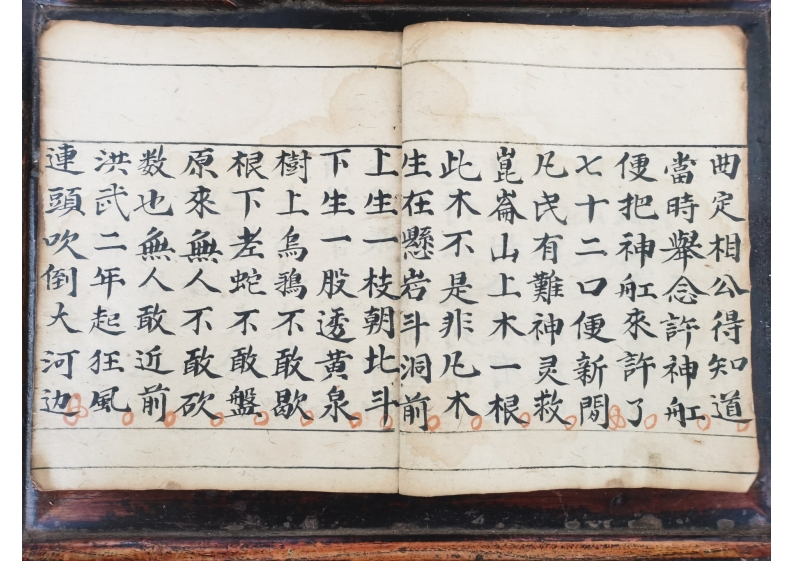 曲定相公得知道
當時舉念許神舡
便把神舡來許了
七十二口便新閒
凡民有難神灵救
崑崙山上木一根
此木不是非凡木
生在懸岩斗洞前
上生一枝朝北斗
下生一股透黄泉
樹上烏鴉不敢歇
根下老蛇不敢盤
原來無人不敢砍
数也無人敢近前
洪武二年起狂風
連頭吹倒大河边